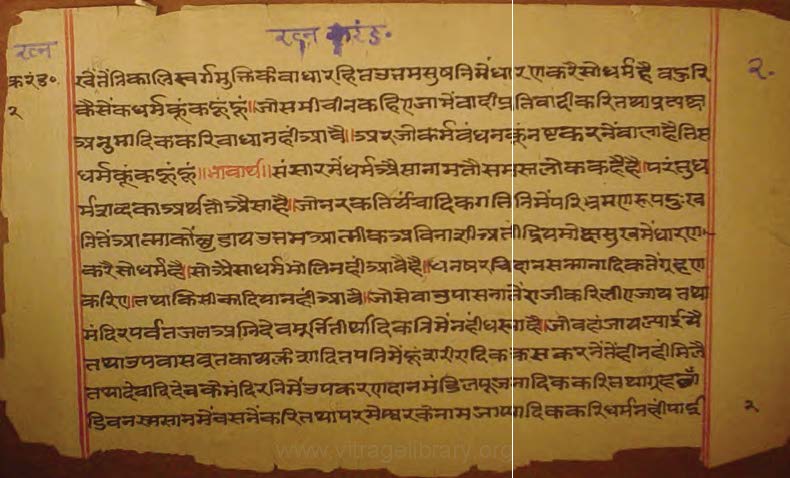 रत्न करंड॰
रत्न
करंड॰
२
२.
खतैंनिकालिस्वर्गमुक्तिकीवाधारहितउत्तमसुषनिमेंधारणकरैसोधर्महै वहुरि
कैसेंकधर्मकूंकहूंहूं॥जोसमीचीनकहिएजामेंवादीप्रतिवादीकरितथाप्रत्यक्षा
अनुमादिककरिवाधानहीआवै॥अरजोकर्मवंधनकूंनष्टकरनेंवालाहैतिस
धर्मकूंकहूंहूं॥भावार्थ॥संसारमेंधर्मऐसानामतौसमस्तलोककहैहै॥परंतुध
र्मशब्दकाअर्थतौऐसाहै॥जोनरकतिर्यंचादिकगतिनिमेंपरिभ्रमणरूपदुःख
नितैंआत्माकोंछुडायउत्तमआत्मीकअविनाशीअतींद्रियमोक्षसुखमेंधारण
करैसोधर्महै॥सोऐसाधर्ममोलिनहीआवैहै॥धनषरचिदानसन्मानादिकतैंगृहण
करिए॥तथाकिसीकादियानहीआवै॥जोसेवाउपासनातैंराजीकरिलीएजाय तथा
मंदिरपर्वतजलअग्निदेवमूर्तितीर्थादिकनिमेंनहीधस्याहै॥जोवहांजायल्याईयै
तथाउपवासवृतकायक्लेशादितपनिमेंहूंशरीरादिककसकरनेंतैंहीनहीमिलै
तथादेवादिदेवकैमंदिरनिमेंउपकरणदानमंडिलपूजनादिककरितथागृह
डिवनस्मसानमेंवसनेंकरितथापरमेश्वरकेनामजाप्यादिककरिधर्मनहीपाई
२
www.vitragelibrary.org